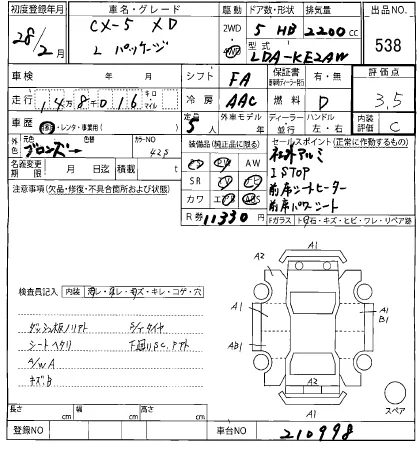 初度登録年月
28/2月
車名・グレード
CX-5 XD
L パッケージ
駆動
2WD
4WD
ドア数・形状
5 HB
排気量
2200cc
型式
LDA-KE2AW
出品NO.
538
車検 年 月
シフト FA
保証書
有・無
評価点
3.5
走行 14万8千016 キロ・マイル
冷房 AAC
燃料 D
車歴 自家・レンタ・事業用( )
定員 5
外車モデル 年
ディーラー
並行
ハンドル
左・右
内装評価
C
外色
元色
ブロンズ→
色替
カラーNO
42S
装備品(純正品に限る)
PS PW AW
SR TV ナビ
カワ エアB ABS
R券 11330円
セールスポイント(正常に作動するもの)
社外アルミ
ISTOP
前席シートヒーター
前席パワーシート
名義変更期限 月 日迄
積載 t
注意事項(欠品・修復・不具合箇所および状態)
Fガラス トビ石・キズ・ヒビ・ワレ・リペア跡
検査員記入
内装
汚レ・スレ・キズ・キレ・コゲ・穴
シートヘタリ
A/W A
キズB
A1
A2
A1
A1
B1
AB1
A2
A1
スペア
長さ cm
幅 cm
高さ cm
登録NO
車台NO
210998